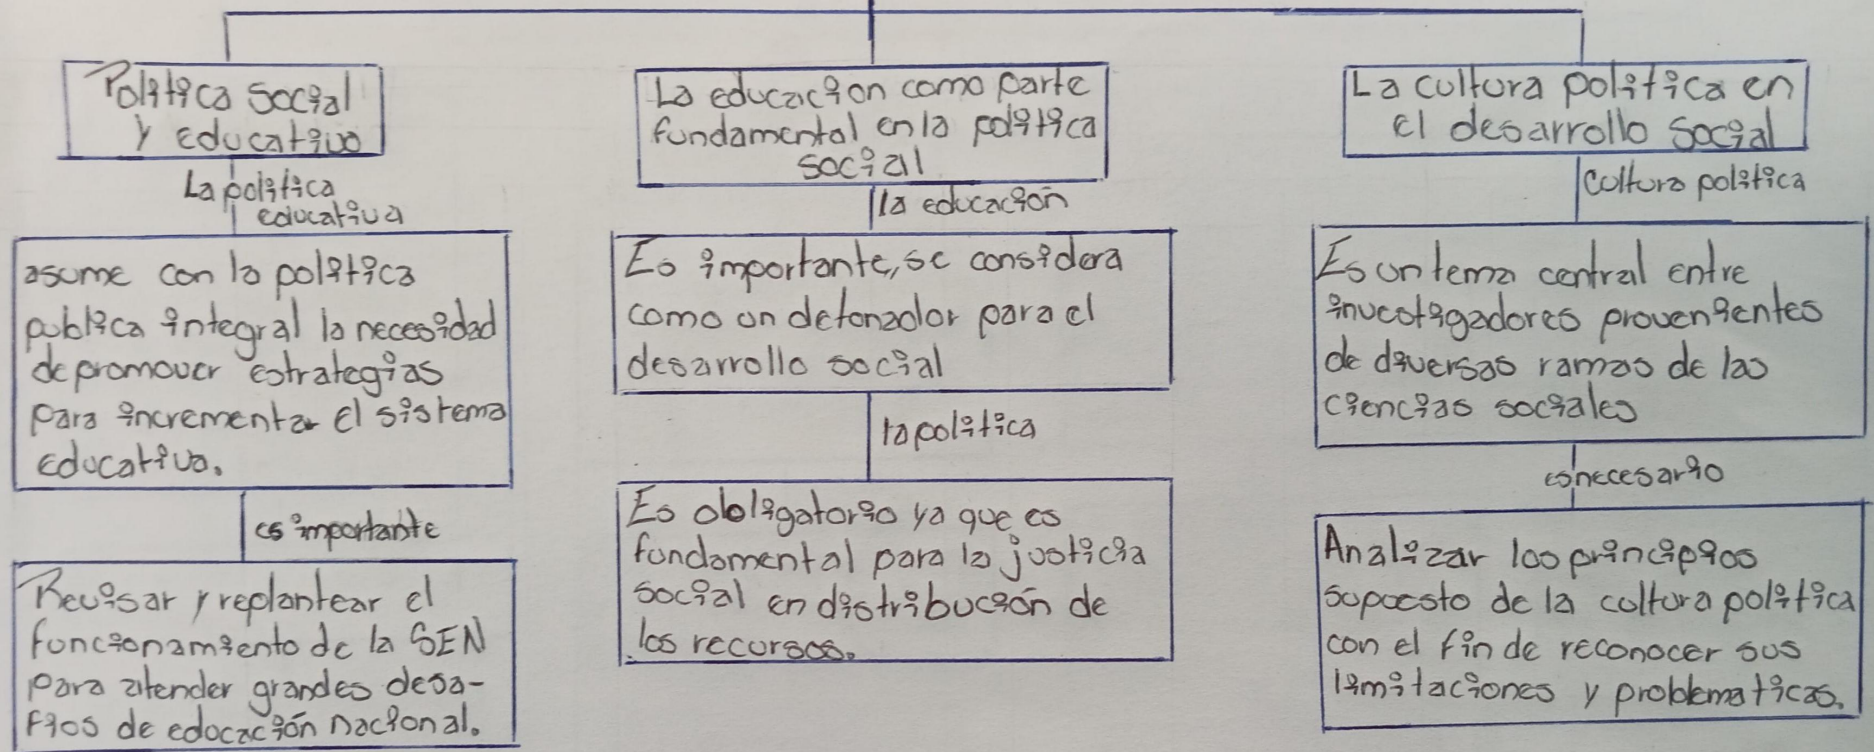 Politica Social
y educativo
La politica
educativa
asume con la politica
publica integral la necesidad
de promover estrategias
para incrementar el sistema
educativo.
es importante
Revisar y replantear el
funcionamiento de la SEN
para atender grandes desa-
fios de educación nacional.
La educacion como parte
fundamental en la politica
social
la educación
Es importante, se considera
como un detonador para el
desarrollo social
la politica
Es obligatorio ya que es
fundamental para la justicia
social en distribución de
los recursos.
La cultura politica en
el desarrollo Social
Cultura politica
Es un tema central entre
investigadores provenientes
de diversas ramas de las
ciencias sociales
es necesario
Analizar los principios
supuesto de la cultura politica
con el fin de reconocer sus
limitaciones y problematicas.